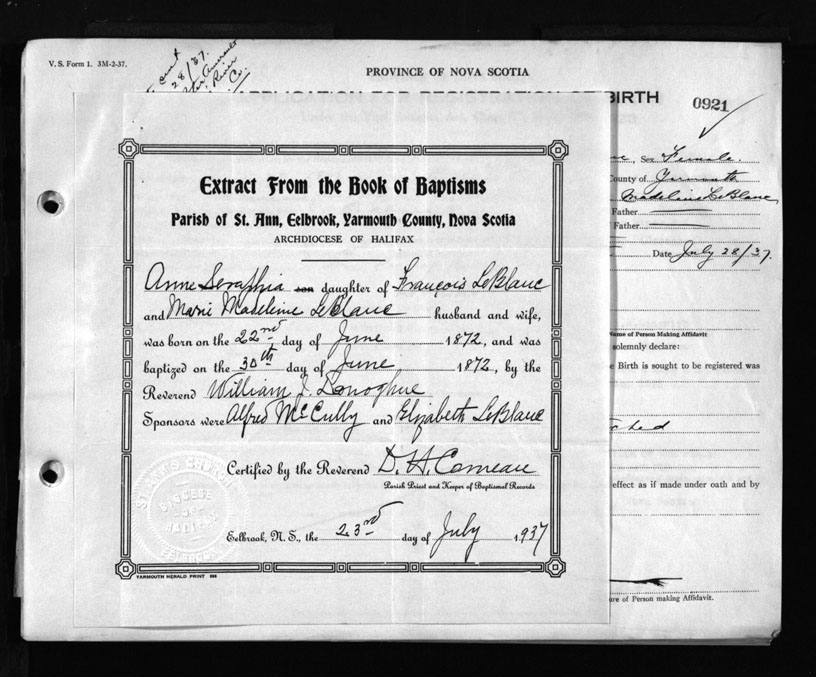 V. S. Form 1. 3M-2-37.
28/37.
River
Co.
PROVINCE OF NOVA SCOTIA
APPLICATION FOR REGISTRATION OF BIRTH
0921
Sex Female.
County of Yarmouth
Madeline LeBlanc
Father
Father
Date July 28/37.
Name of Person Making Affidavit
solemnly declare:
Birth is sought to be registered was
effect as if made under oath and by
of Person making Affidavit.
Extract From the Book of Baptisms
Parish of St. Ann, Eelbrook, Yarmouth County, Nova Scotia
ARCHDIOCESE OF HALIFAX
Anne Seraphia son daughter of François LeBlanc
and Marie Madeline LeBlanc husband and wife,
was born on the 22nd day of June 1872, and was
baptized on the 30th day of June 1872, by the
Reverend William J. Donoghue
Sponsors were Alfred McCully and Elizabeth LeBlanc
Certified by the Reverend D. H. Comeau
Parish Priest and Keeper of Baptismal Records
Eelbrook, N. S., the 23rd day of July 1937
YARMOUTH HERALD PRINT